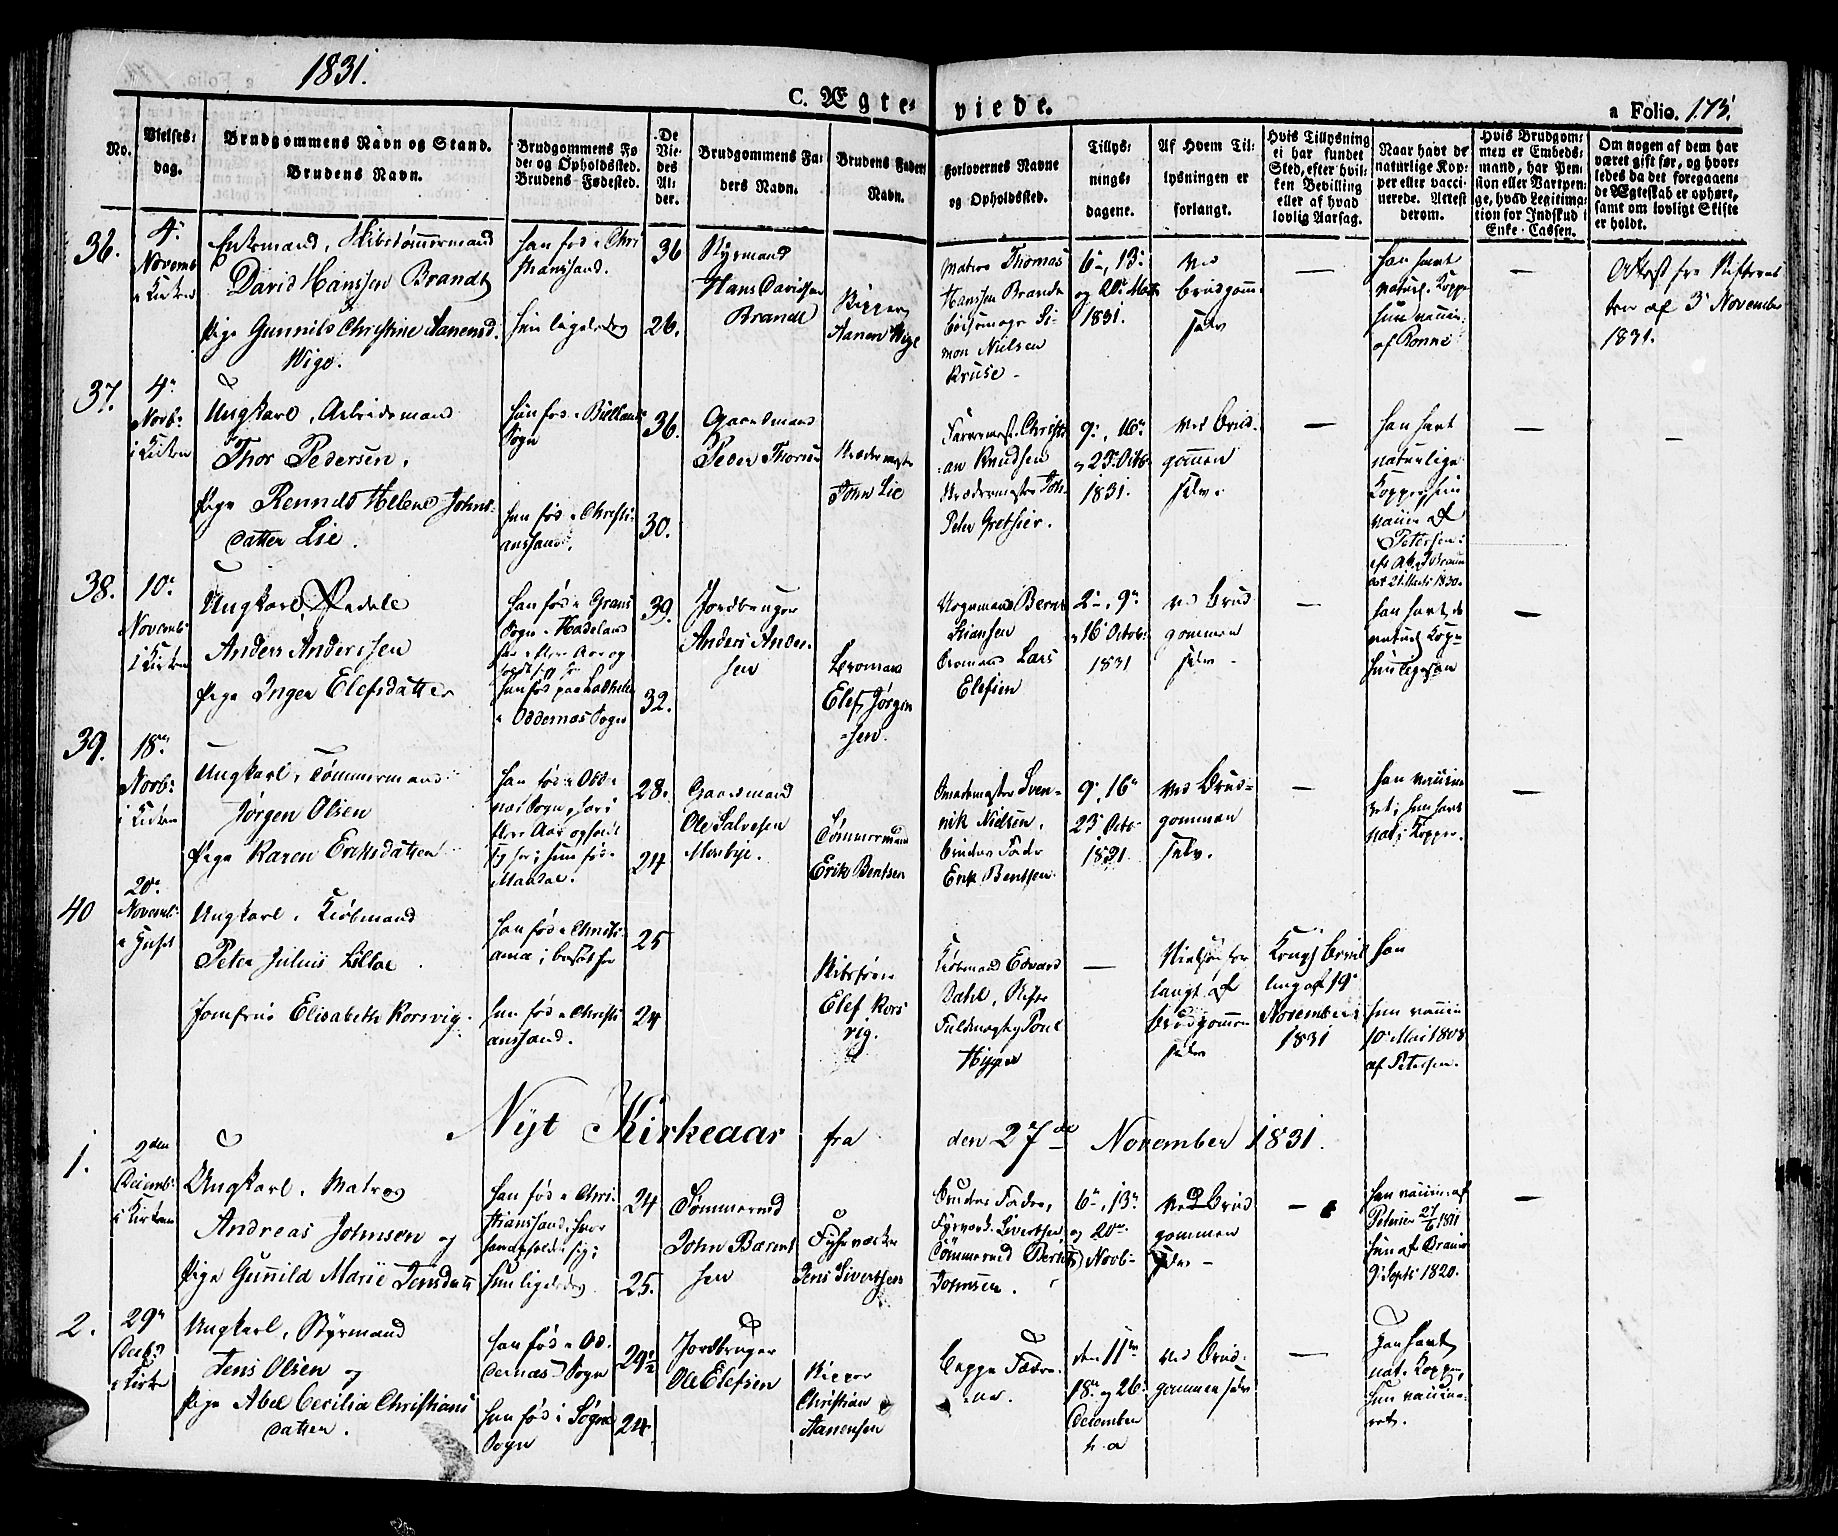 1831.
C. Ægte-
viede.
a Folio. 175.
No.
Vielses-
dag.
Brudgommens Navn og Stand.
Brudens Navn.
Brudgommens Fø
de- og Opholdssted.
Brudens Fødested.
De
Vie-
des
Al-
der.
Brudgommens Fa-
ders Navn.
Brudens Faders
Navn.
Forlovernes Navne
og Opholdssted.
Tillys-
nings-
dagene.
Af Hvem Til-
lysningen er
forlangt.
Hvis Tillysning
ei har fundet
Sted, efter hvil-
ken Bevilling
eller af hvad
lovlig Aarsag.
Naar havt de
naturlige Kop-
per eller vacci-
nerede. Attest
derom.
Hvis Brudgom-
men er Embeds-
mand, har Pen-
sion eller Vartpen-
ge, hvad Legitima-
tion for Indskud i
Enke-Cassen.
Om nogen af dem har
været gift før, og hvor-
ledes da det foregaaen-
de Ægteskab er ophørt,
samt om lovligt Skifte
er holdt.
36.
4.
Novemb
i Kirken
Enkemand, Skibstømmermand
David Hanssen Brandt
Pige Gunnild Christine Aanensd.
Wige.
han fød i Chri
stianssand.
hun ligeledes
36
26.
Styrmand
Hans Davidsen
Brandt
Skipper
Aanen Wige
Matros Thomas
Hanssen Brandt
Si-
mon Nielsen
Kruse
6-, 13-
og 20-
1831.
Ved
brudgom
selv
—
han havt
naturl. Kopp
hun vaccin.
af Rønne
—
Attest fra Skifteret
ten af 3 November
1831.
37.
4-
Novb-
i Kirken
Ungkarl, Arbeidsmand
Thor Pedersen,
Pige Renneds Helene Johns-
datter Lie.
han fød i Bielland
Sogn
hun fød i Christi-
anssand.
36.
30.
Gaardmand
Peder Thorsen
Skrædermester
John Lie
Farvermest. Christi
an Knudsen
Skrædermester Joh.
Peter Gretzier.
9-, 16-
23- Octb-
1831.
Ved Brud-
gommen
selv.
—
han havt
naturlige
Kopper, hun
vaccin. af
Petersen
21 Marts 1830.
—
—
38.
10-
Novemb-
i Kirken
Ungkarl,
Anders Anderssen
Pige Inger Elefsdatter
han fød i Grans
Sogn i Hadeland
hun fød paa
i Oddernæs Sogn
39.
32.
Jordbruger
Anders Ander-
sen
Broemand
Elef Jørgen
-sen.
Bernt
Broemand Lars
Elefsen
2-, 9-
16 Octob-
1831
ved Brud
gommen
selv -
—
han havt de
naturl. Kop-
hun ligesaa
—
39.
18-
Novb-
i Kirken
Ungkarl, Tømmermand
Jørgen Olsen
Pige Karen Eriksdatter
han fød i Odd-
næs Sogn, har i
flere Aar opholdt
sig her; hun fød i
Mandal.
28.
24
Gaardmand
Ole Salvesen
Mosbye.
Tømmermand
Erik Bentsen
Smedemester Sven-
nik Nielsen,
Brudens Fader
Erik Bentsen.
9-, 16-
23- Octb-
1831.
Ved Brud-
gommen
selv.
—
han vaccine
ret; hun havt
nat. Kopper.
—
40
20-
Novemb-
i Huset
Ungkarl, Kiøbmand
Peter Julius Lilloe
Jomfrue Elisabeth Korsvig.
han fød i Christi-
ania; bosat her
hun fød i Christi
anssand.
25
24
Skibsfører
Elef Kors
vig.
Kiøbmand Edvard
Dahl,
Fuldmægtig Poul
Høyer
—
Vielsen for
langt af
brudgommen
selv
Kongl. bevil
ling af 19-
November
1831
han
hun vaccin
10- Mai 1808
af Petersen.
Nyt Kirkeaar fra den 27de November 1831.
1.
2den
Decemb-
i Kirken
Ungkarl, Matros
Andreas Johnsen og
Pige Gunild Marie Jensdatt
han fød i Chri-
stianssand, hvor
han opholder sig;
hun ligeledes.
24
25.
Tømmermd
John Barent
sen
Fyhrværker
Jens Sivertsen
Brudens Fader,
Fyrverk. Sivertsen
Tømmermd Berent
Johnsen.
6-, 13-
og 20-
Novb-
Ved Brud
gommen
selv -
—
han vaccin. af
Petersen 27/6 1811
hun af Brauner
9 Septb 1820.
—
2.
29-
Decb-
i Kirken
Ungkarl, Styrmand
Jens Olsen og
Pige Abel Cecilia Christians
datter.
han fød i Od-
dernæs Sogn
hun fød i Søgne
Sogn
29½
24.
Jordbruger
Ole Elefsen
Skipper
Christian
Aanensen
Begge Fædre-
ne.
den 11-
18- og 26-
December
h. a
ved Brud-
gommen selv
—
Han havt
nat. Kopper,
hun vaccine-
ret.